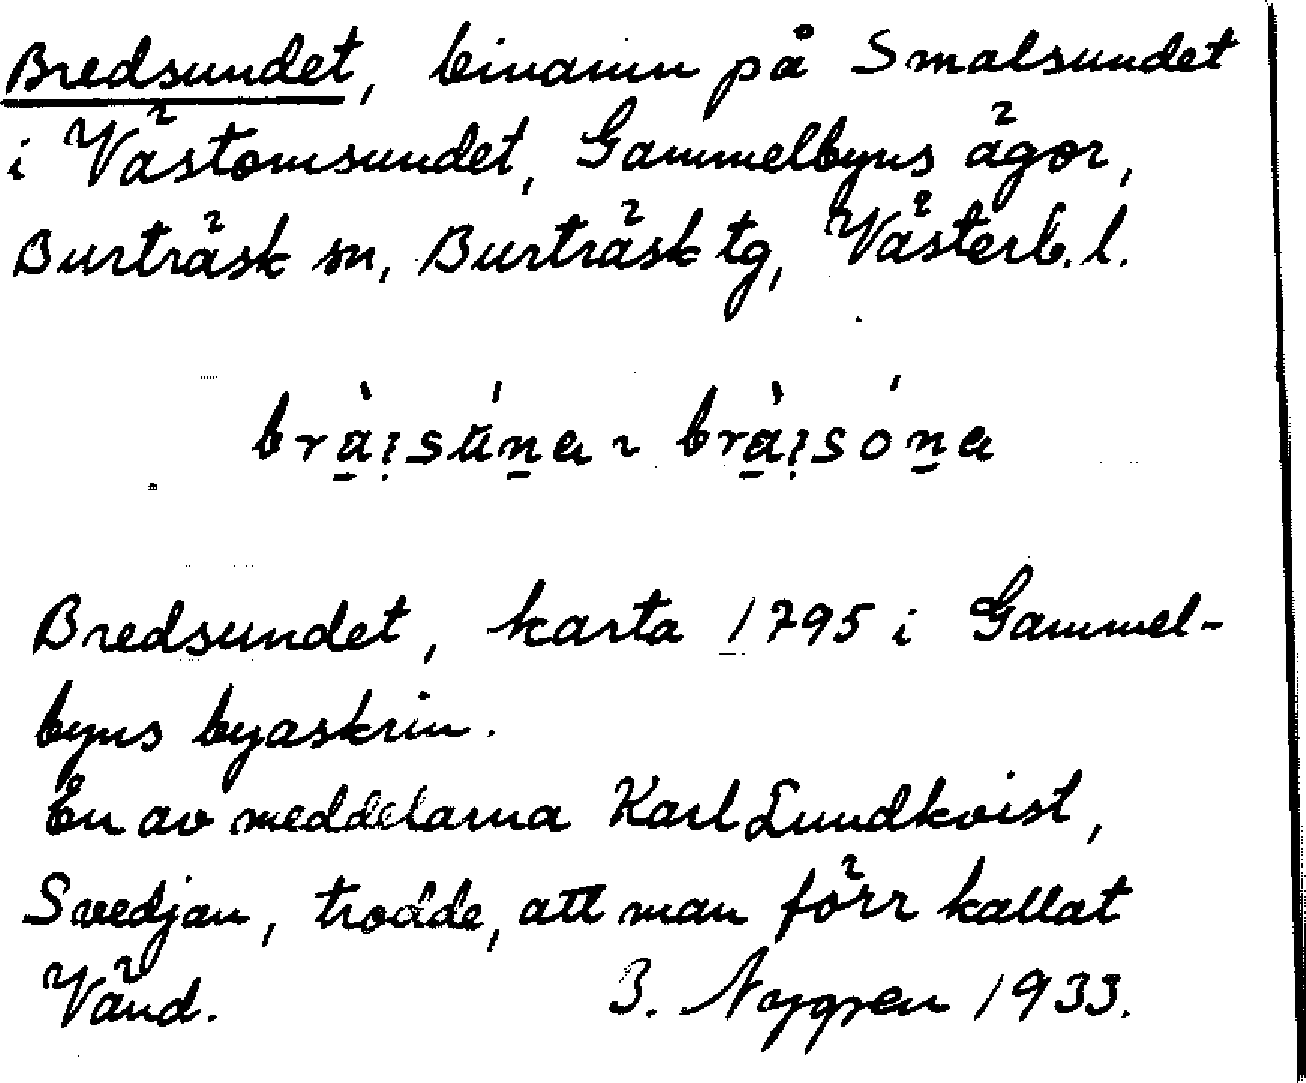 Bredsundet, binamn på Smalsundet
i Västomsundet, Gammelbyns ägor,
Burträsk sn, Burträsk tg, Västerb. l.
Bredsundet, karta 1795 i Gammel-
byns byaskrin.
En av meddelarna Karl Lundkvist,
Svedjan, trodde, att man förr kallat
Vänd. B. Nygren 1933.